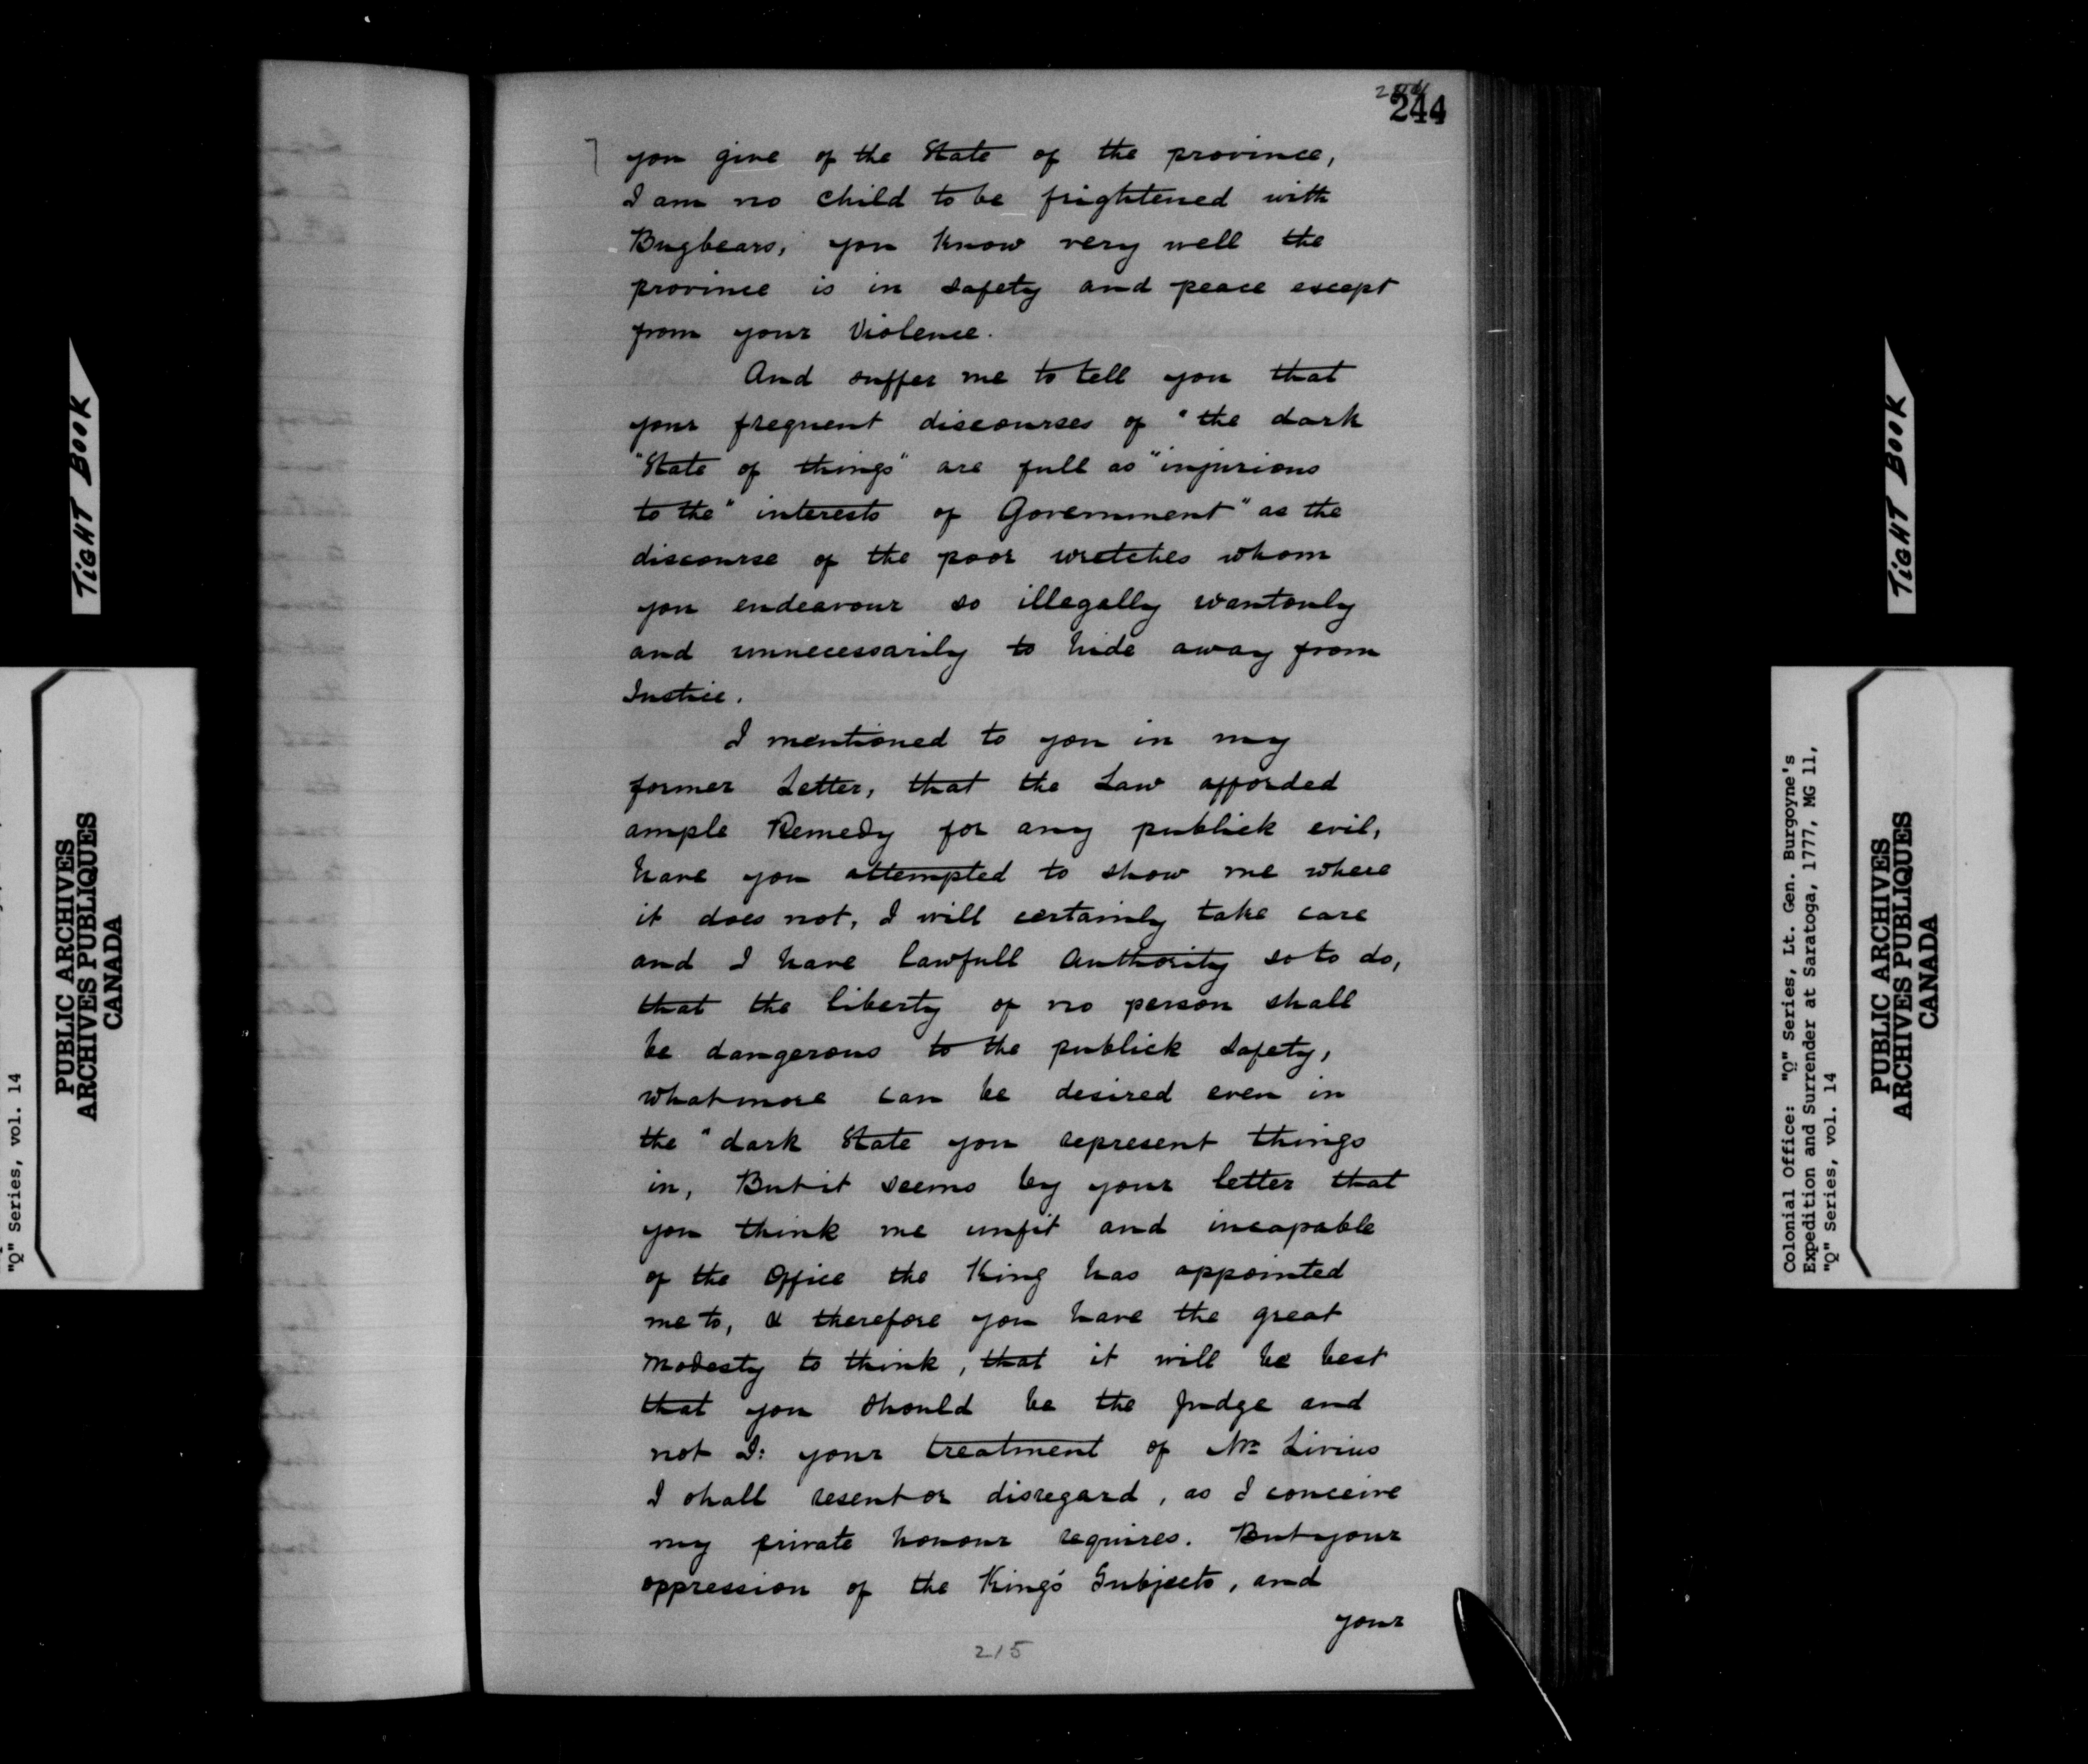 244
you give of the State of the province,
I am no child to be frightened with
Bugbears, you know very well the
province is in safety and peace except
from your Violence.
And suffer me to tell you that
your frequent discourses of "the dark
"State of things" are full as "injurious
to the" interests of Government" as the
discourse of the poor wretches whom
you endeavour so illegally wantonly
and unnecessarily to hide away from
Justice.
I mentioned to you in my
former Letter, that the Law afforded
ample Remedy for any publick evil,
have you attempted to show me where
it does not, I will certainly take care
and I have lawfull authority so to do,
that the liberty of no person shall
be dangerous to the publick safety,
what more can be desired even in
the "dark State you represent things
in, But it seems by your letter that
you think me unfit and incapable
of the Office the King has appointed
me to, & therefore you have the great
Modesty to think, that it will be best
that you should be the Judge and
not I: your treatment of Mr Livius
I shall resent or disregard, as I conceive
my private honour requires. But your
oppression of the King's Subjects, and
your
215
TIGHT BOOK
"Q" Series, vol. 14
PUBLIC ARCHIVES
ARCHIVES PUBLIQUES
CANADA
TIGHT BOOK
Colonial Office: "Q" Series, Lt. Gen. Burgoyne's
Expedition and Surrender at Saratoga, 1777, MG 11,
"Q" Series, vol. 14
PUBLIC ARCHIVES
ARCHIVES PUBLIQUES
CANADA